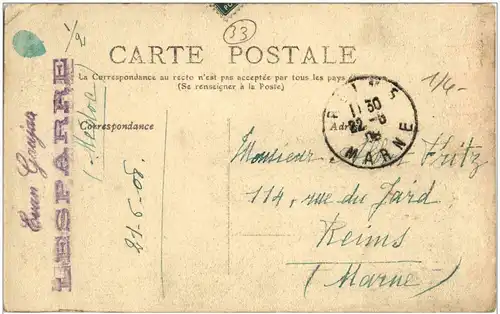 33
1/2
CARTE POSTALE
La Correspondance au recto n'est pas acceptée par tous les pays
(Se renseigner à la Poste)
Correspondance
Adr
REIMS
11 30
22-6
08
MARNE
1/4-
LESPARRE
(Médoc)
Monsieur Fritz
114, rue du Jard
Reims
(Marne)